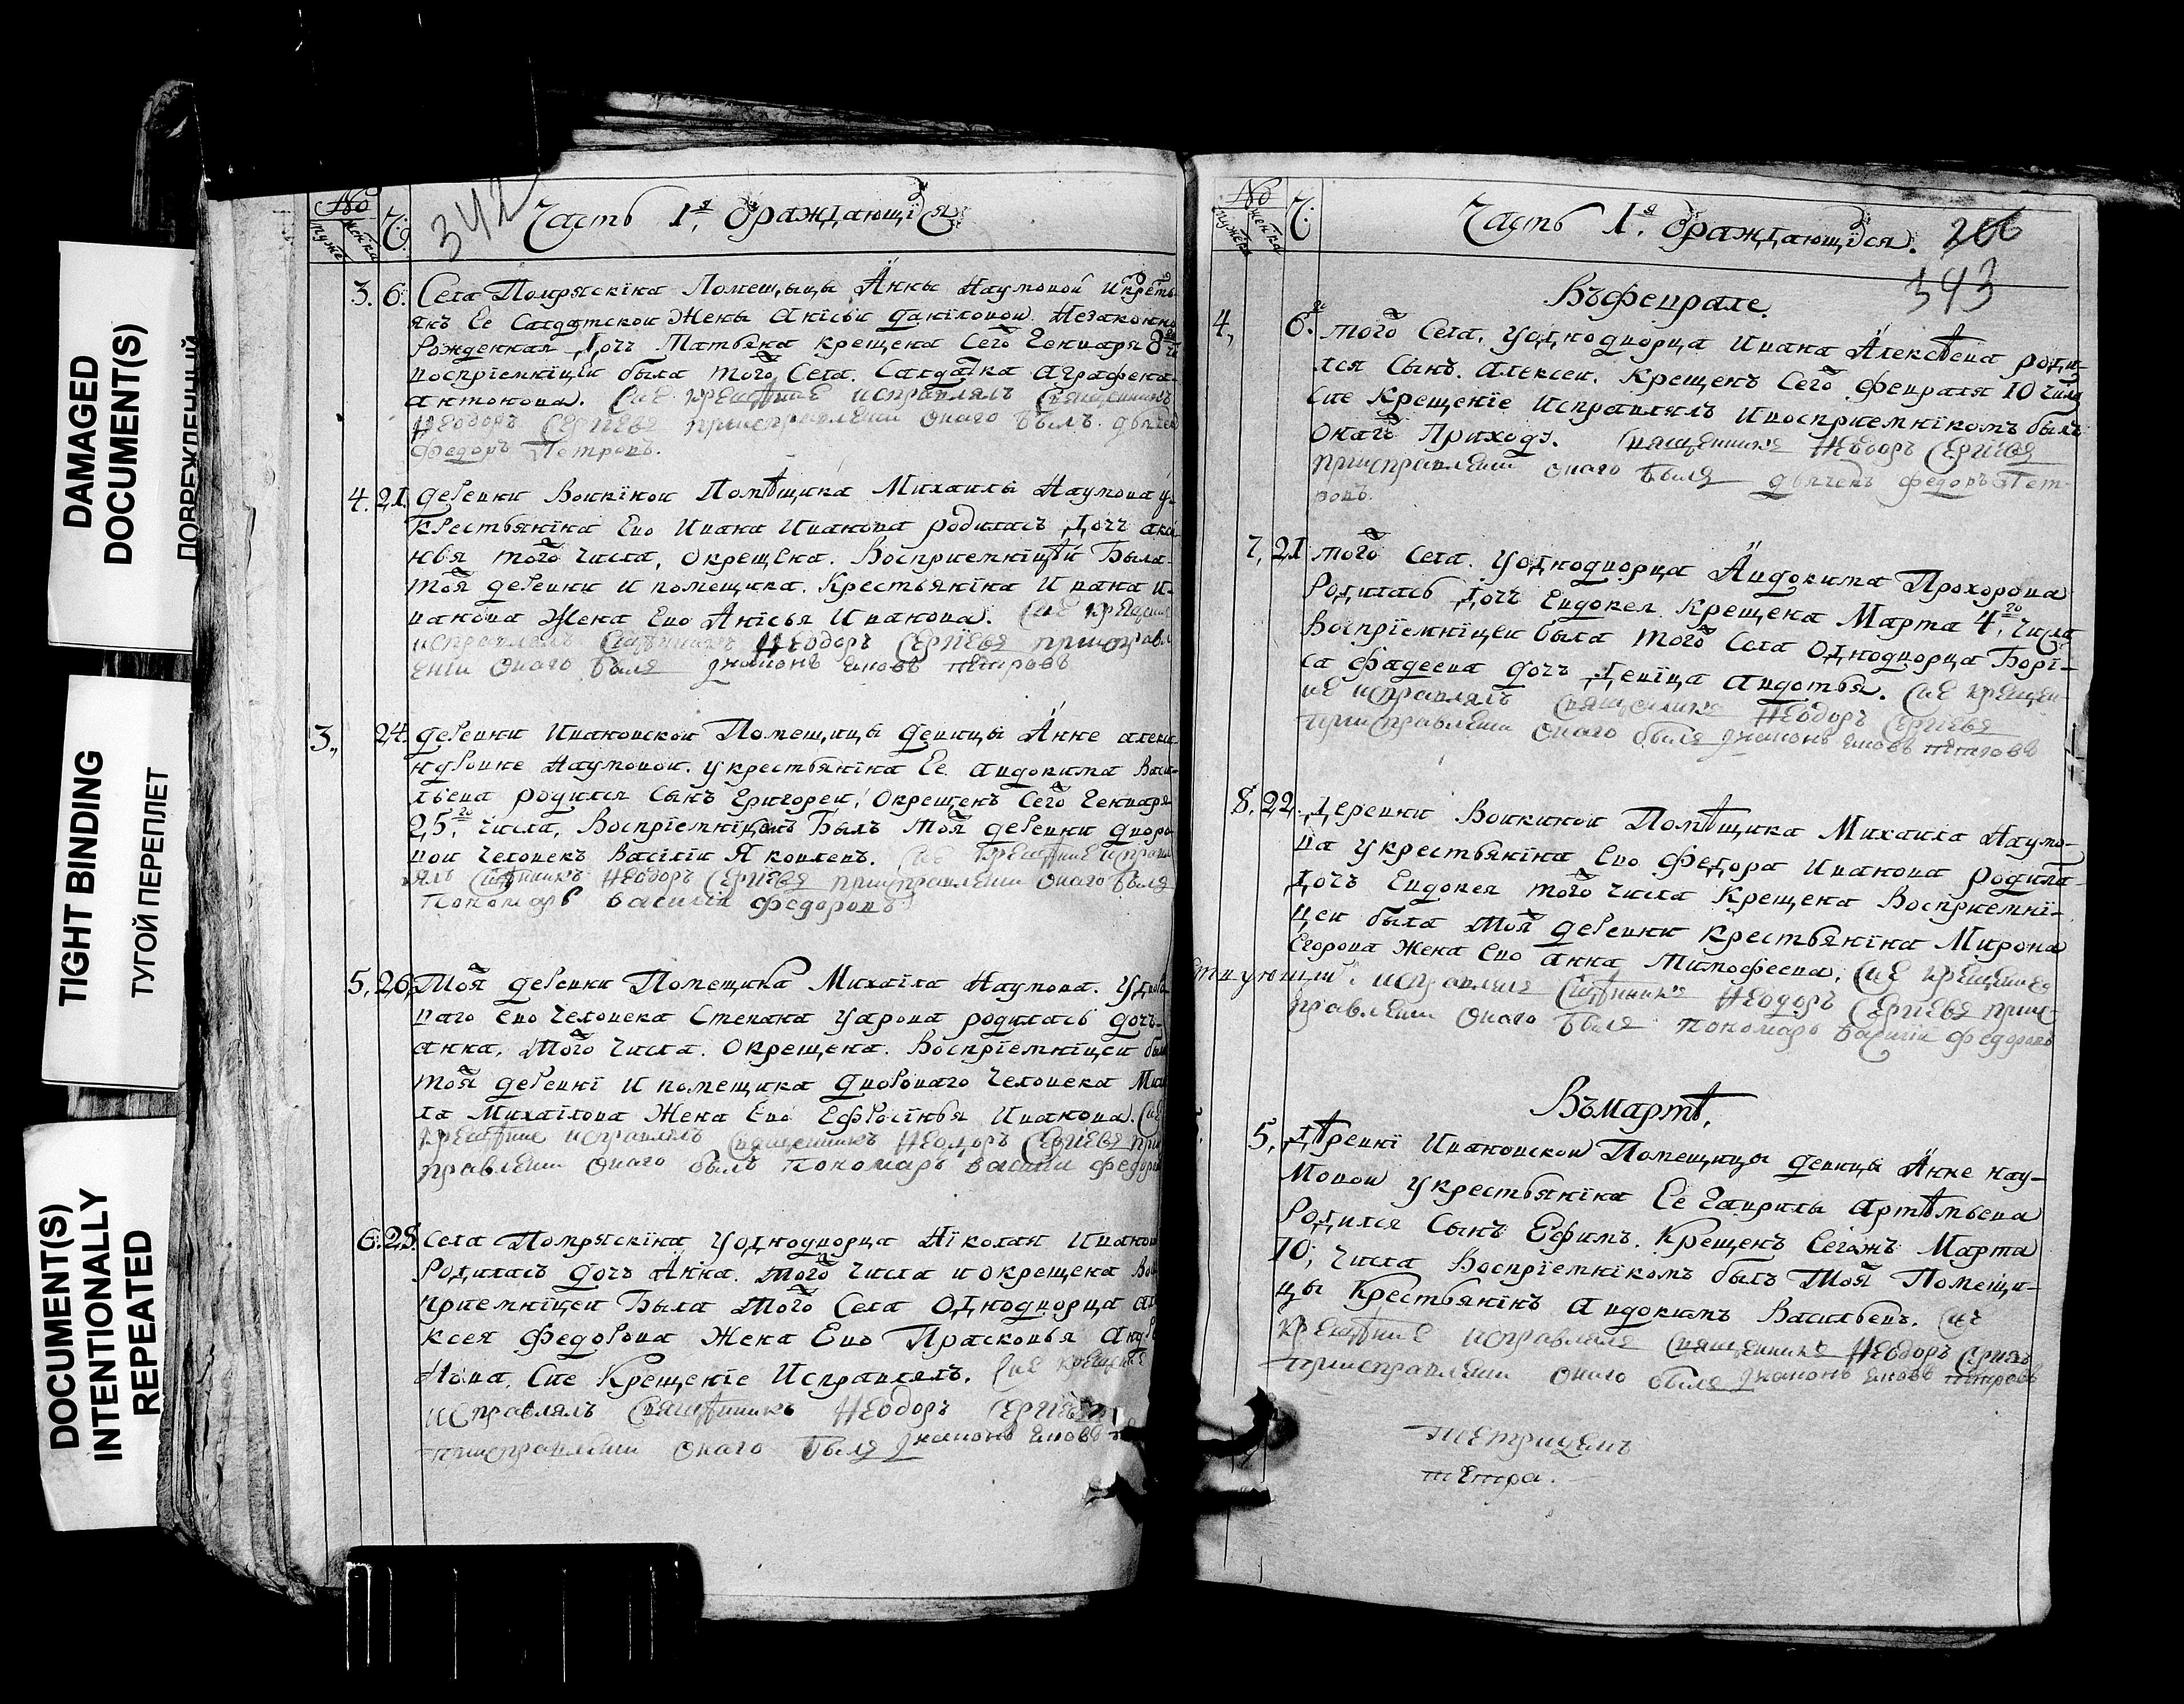 DAMAGED
DOCUMENT(S)
ПОВРЕЖДЕННЫЙ
TIGHT BINDING
ТУГОЙ ПЕРЕПЛЕТ
DOCUMENT(S)
INTENTIONALLY
REPEATED
342
Часть 1я, ораждающiхся
3. 6. Села Помряскiна Помещьщы Анны Наумовой
янъ Ее Салдатской Жены Анiсьи Данiловой Незаконно
Рожденная Дочъ Матвьяна крещена Сего Генваря 8
воспрiемнiцеи была того Села. Салдатка Аграфена
Антонова. Сие крещѣние исправлялъ Священникъ
Ѳеодоръ Сергiевъ приисправлении онаго былъ дьячек
Федоръ Петровъ.
4. 21. Деревни Воикiнои Помѣщика Михаилы Наумова у
крестьянiна Ево Ивана Иванова родилась Дочъ
того числа, Окрещена. Восприемнiцѣи Была
тоя деревни и помещика. Крестьянiна Ивана И-
ванова Жена Ево Анiсья Иванова. Сие крещение
исправлялъ Священникъ Ѳеодоръ Сергiевъ приисправл
ении онаго былъ дiаконъ Iяковъ Петровъ
3. 24. Деревни Ивановской Помещицы девицы Анне алекса
ндровне Наумовои. у крестьянiна Ее Авдокима Васи
льева родился Сынъ Григореи, Окрещенъ Сего Генваря
25го числа, Воспрiемнiкомъ Былъ тоя деревни дворо
вои человекъ Васiлiи Яковлевъ. Сие крещѣние исправл
ялъ Свѣщѣнникъ Ѳеодоръ Сергiевъ приисправлении онаго былъ
пономарь василiи федоровъ
5. 26. Тоя деревни Помещика Михаiла Наумова. у дворо
ваго ево человека Степана Уарова родилась дочъ
анна. того числа. Окрещена. Воспрiемнiцеи была
тоя деревнi и помещика двороваго человека
ла Михаiлова Жена Ево Ефросiнья Иванова. Сие
крещѣние исправлялъ Священникъ Ѳеодоръ Сергiевъ при
правлении онаго былъ пономарь василiи федоровъ
6. 28. Села Помряскiна у однодворца Нiколая Иванова
Родилась дочъ Анна. того числа и окрещена Вос
приемнiцеи Была того Села Однодворца Але
ксея Федорова Жена Ево Прасковья
Сие Крещенiе Исправлялъ. Сие крещение
исправлялъ Священникъ Ѳеодоръ Сергiевъ
приисправлении онаго былъ дiаконъ Iяковъ
Часть 1я. ораждающiхся.
343
Въ феврале.
4, 6. того Села. у однодворца Ивана Алексѣева роди
лся Сынъ. Алексеи. Крещенъ Сего февраля 10 числа
Сие Крещенiе Исправлялъ Ивосприемнiкомъ былъ
Онаго Приходу. Священникъ Ѳеодоръ Сергиевъ
приисправлении онаго былъ дьячекъ Федоръ Пет-
ровъ.
7, 21 того Села. у однодворца Авдокима Прохорова
Родилась Дочъ Евдокея Крещена Марта 4го числа
Воспрiемнiцеи была того Села Однодворца Борi-
са Фадеева дочъ Девiца Авдотья. Сие крещен-
ие исправлялъ Священникъ Ѳеодоръ Сергиевъ
приисправлении онаго былъ дiаконъ Iяковъ Петровъ
8. 22. Деревни Воикинои Помѣщика Михаила Наумо-
ва у крестьянiна Ево Федора Иванова родила
Дочъ Евдокея того числа Крещена Восприемнi-
цеи была тоя деревни крестьянiна Мирона
Егорова Жена ево Анна Тимофеева. Сие крещение
исправлялъ Свѣщѣнникъ Ѳеодоръ Сергиевъ приис-
правлении онаго былъ пономарь василiи федоровъ
Въ Мартѣ,
5, Дѣревнi Ивановской Помещицы девицы Анне Нау-
мовои у крестьянiна Ее Гаврилы Артѣмьева
Родился Сынъ Ефимъ. Крещенъ Сегожъ Марта
10, числа Воспрiемнiкомъ былъ тоя Помещи-
цы Крестьянiнъ Авдокимъ Васильевъ. Сие
крещѣние исправлялъ Священникъ Ѳеодоръ Сергиевъ
приисправлении онаго былъ дiаконъ Iяковъ Петровъ